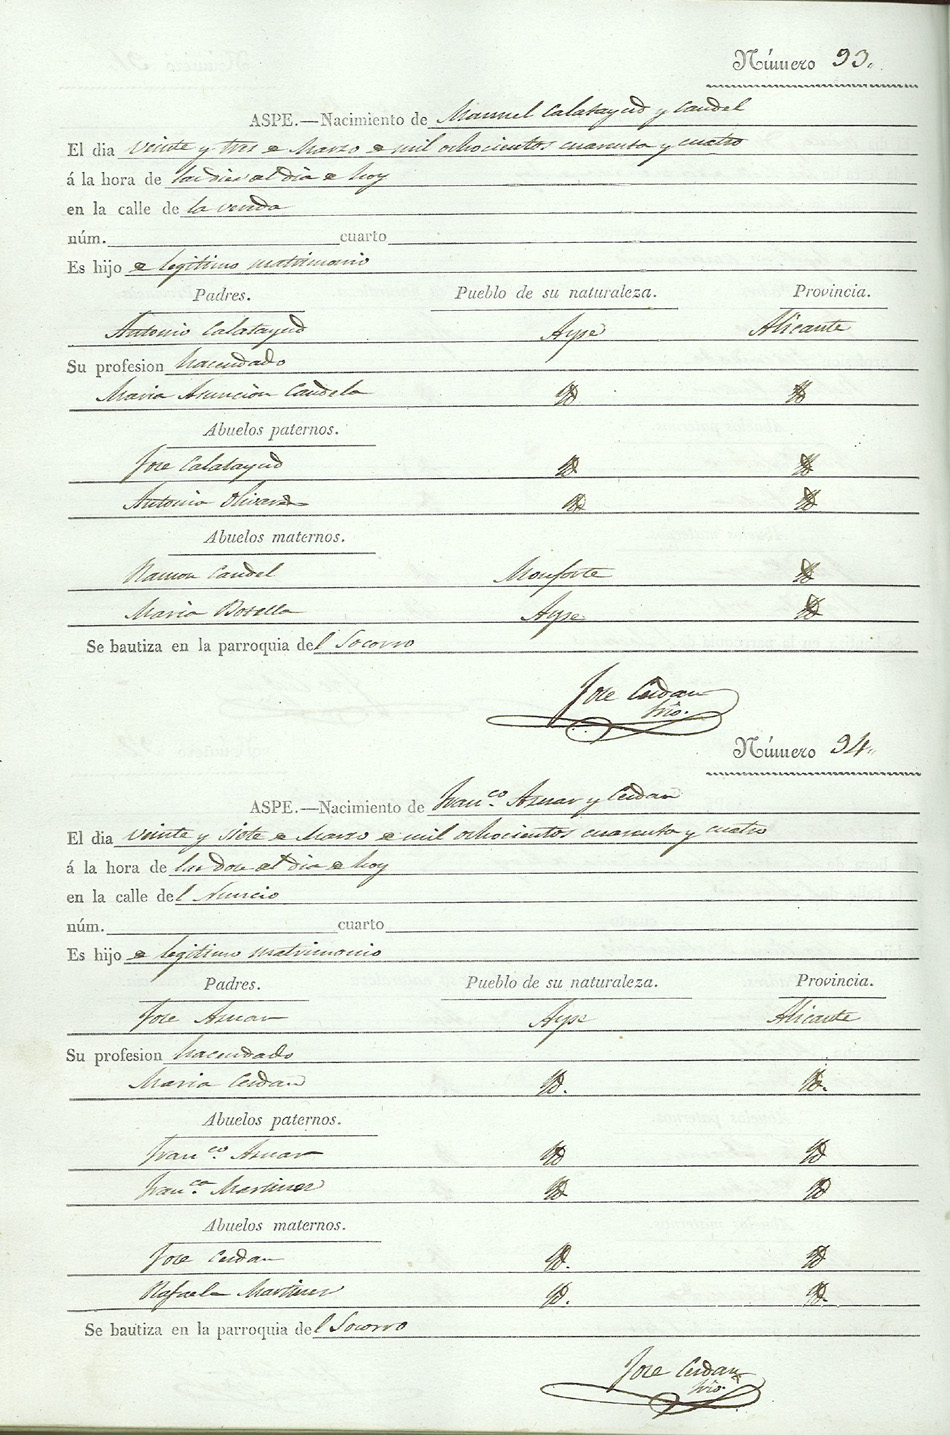 Número 93.
ASPE.—Nacimiento de Manuel Calatayud y Candel
El dia veinte y tres de Marzo de mil ochocientos cuarenta y cuatro
á la hora de las dies del dia de hoy
en la calle de la venda
núm. cuarto
Es hijo de legitimo matrimonio
Padres. Pueblo de su naturaleza. Provincia.
Antonio Calatayud Aspe Alicante
Su profesion hacendado
Maria Asuncion Candela Yd Yd
Abuelos paternos.
Jose Calatayud Yd Yd
Antonia Yd Yd
Abuelos maternos.
Ramon Candel Monforte Yd
Maria Botella Aspe Yd
Se bautiza en la parroquia del Socorro
Jose Cerdan
Srio.
Número 94.
ASPE.—Nacimiento de Fran.co Aznar y Cerdan
El dia veinte y siete de Marzo de mil ochocientos cuarenta y cuatro
á la hora de las doce del dia de hoy
en la calle del Nuncio
núm. cuarto
Es hijo de legitimo matrimonio
Padres. Pueblo de su naturaleza. Provincia.
Jose Aznar Aspe Alicante
Su profesion hacendado
Maria Cerdan Yd. Yd.
Abuelos paternos.
Fran.co Aznar Yd Yd
Fran.ca Martinez Yd Yd
Abuelos maternos.
Jose Cerdan Yd. Yd
Rafaela Martinez Yd. Yd.
Se bautiza en la parroquia del Socorro
Jose Cerdan
Srio.